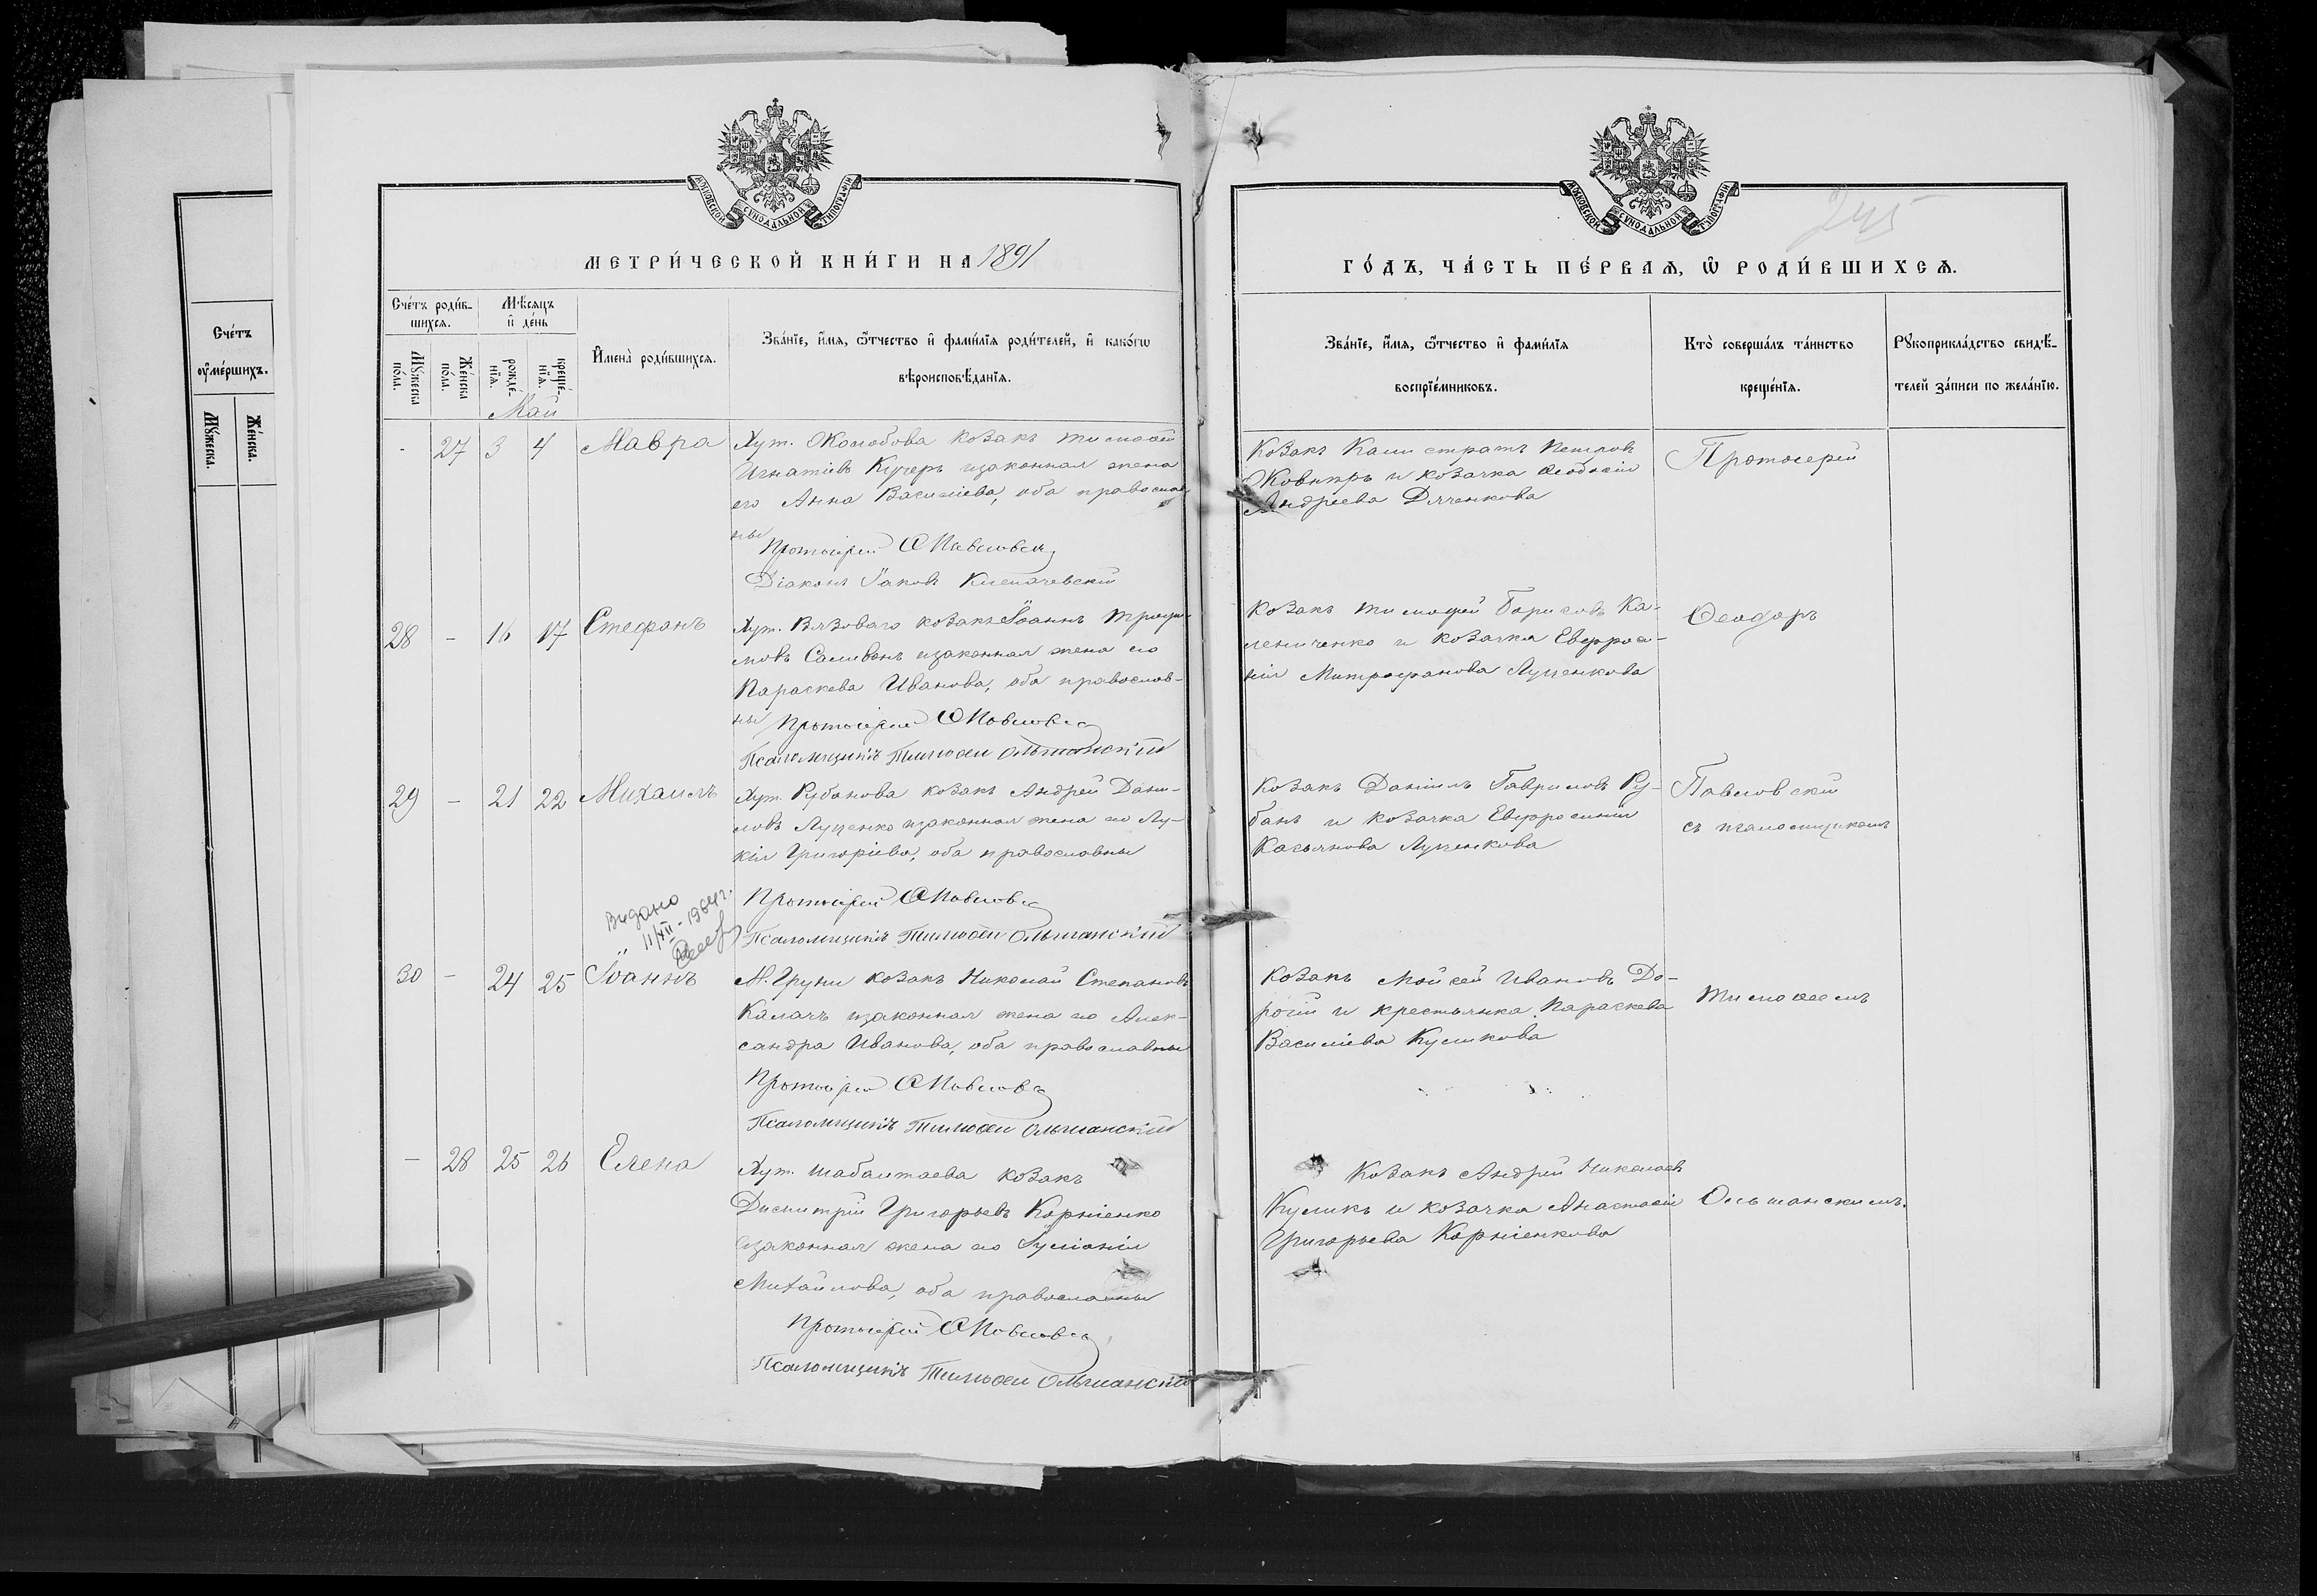 Счетъ
оумершихъ.
Мужеска.
Женска.
МОСКОВСКОЙ СУНОДАЛЬНОЙ ТИПОГРАФІИ
МЕТРИЧЕСКОЙ КНИГИ НА 1891
Счетъ родившихся.
Мѣсяцъ и день
Мужеска пола.
Женска пола.
рожденія.
крещенія.
Имена родившихся.
Званіе, имя, отчество и фамилія родителей, и какого
вѣроисповѣданія.
Май
- 27 3 4 Мавра Хут. Жолобова козакъ Тимоѳей
Игнатіевъ Кучеръ изаконная жена
его Анна Василіева, оба православ
ны
Протоіерей Ѳ Павловскій
Діаконъ Іаковъ
28 - 16 17 Стефанъ Хут. Вязоваго козакъ Іоаннъ Трофи-
мовъ Саливонъ изаконная жена его
Параскева Иванова, оба православ-
ны Протоіерей Ѳ Павловскій
Псаломщикъ Тимоѳей Ольшанскій
29 - 21 22 Михаилъ Хут. Рубанова козакъ Андрей Дани-
ловъ Луценко изаконная жена его Лу-
кія Григоріева, оба православны
Видано
11/XII-1964г.
Протоіерей Ѳ Павловскій
Псаломщикъ Тимоѳей Ольшанскій
30 - 24 25 Іоаннъ М. Груни козакъ Николай Степановъ
Калачъ изаконная жена его Алек-
сандра Иванова, оба православны
Протоіерей Ѳ Павловскій
Псаломщикъ Тимоѳей Ольшанскій
- 28 25 26 Елена Хут. Шабалтаева козакъ
Димитрій Григорьевъ Корніенко
изаконная жена его Іуліанія
Михайлова, оба православны
Протоіерей Ѳ Павловскій
Псаломщикъ Тимоѳей Ольшанскій
МОСКОВСКОЙ СУНОДАЛЬНОЙ ТИПОГРАФІИ
245
ГОДЪ, ЧАСТЬ ПЕРВАЯ, Ѡ РОДИВШИХСЯ.
Званіе, имя, отчество и фамилія
воспріемниковъ.
Кто совершалъ таинство
крещенія.
Рукоприкладство свидѣ-
телей записи по желанію.
Козакъ Калистратъ Петровъ
Жовниръ и козачка Ѳеодосія
Андреева Дяченкова
Протоіерей
Козакъ Тимоѳей Борисовъ Ка-
лениченко и козачка Евфроси-
нія Митрофанова Луценкова
Ѳеодоръ
Козакъ Даніилъ Гавриловъ Ру-
банъ и козачка Евфросинія
Касьянова Луценкова
Павловскій
съ псаломщикомъ
Козакъ Мойсей Ивановъ До-
рогій и крестьянка Параскева
Василіева Куликова
Тимоѳеемъ
Козакъ Андрей Николаевъ
Куликъ и козачка Анастасія
Григорьева Корніенкова
Ольшанскимъ.